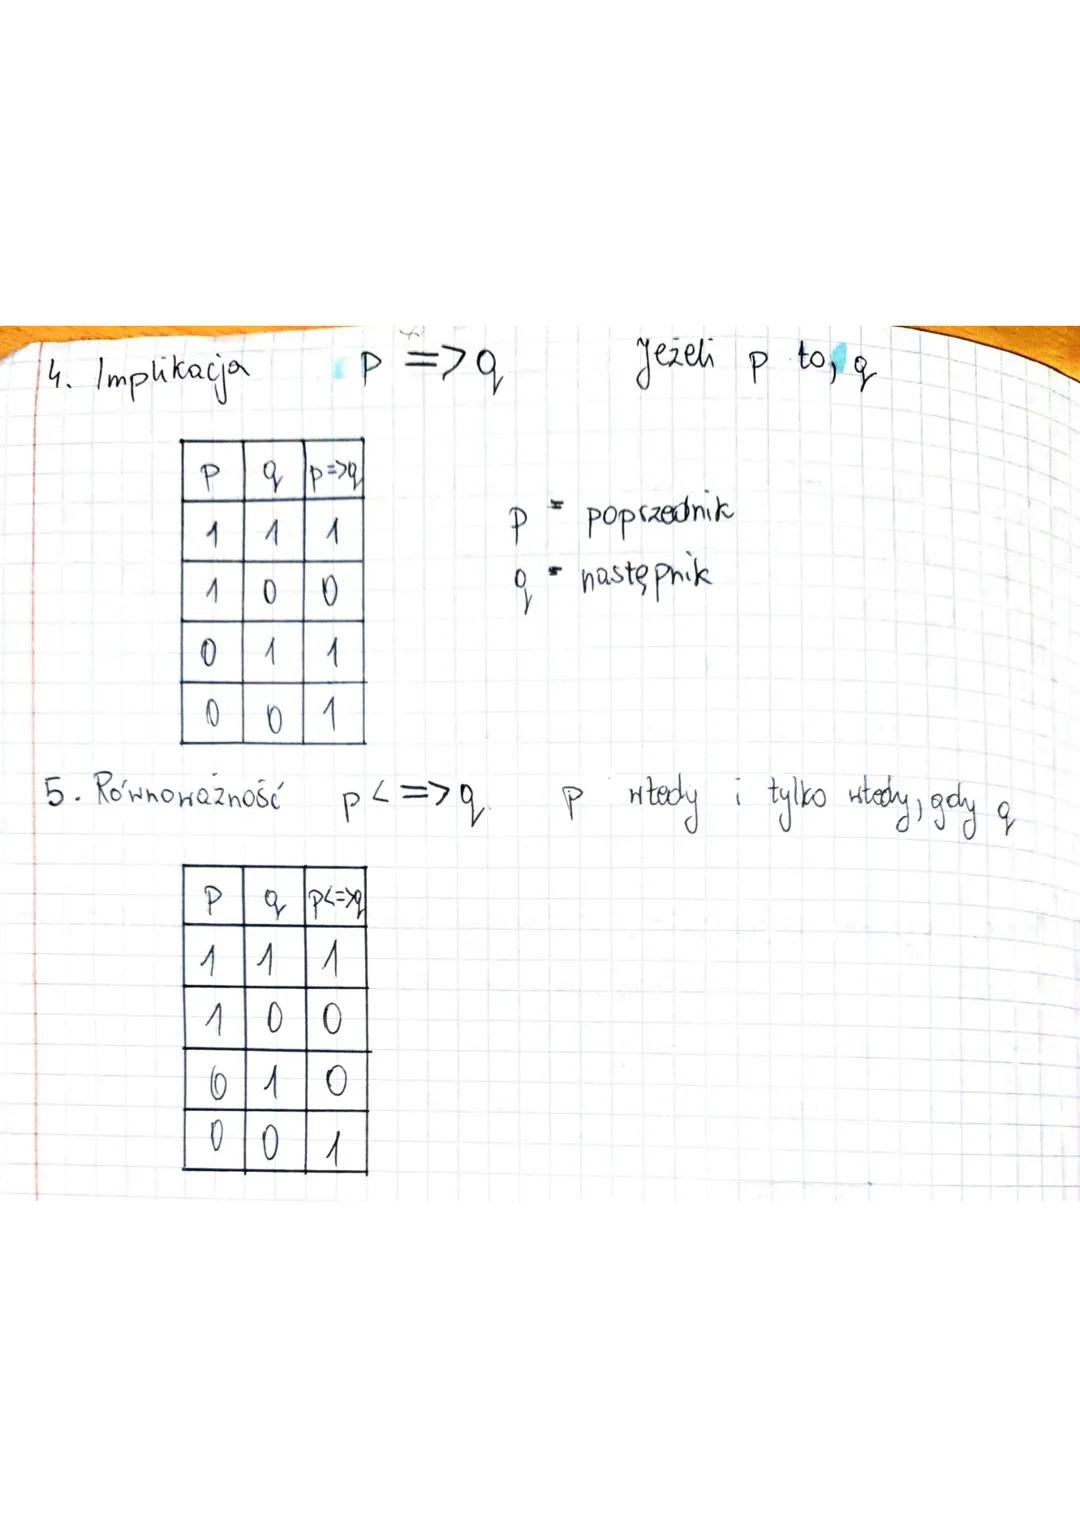 4. Implikacja p => q Jeżeli p to, q
p q p=>q
1 1 1
1 0 0
0 1 1
0 0 1
p = poprzednik
q = następnik
5. Równoważność p <=> q p wtedy i tylko wtedy, gdy q
p q p<=>q
1 1 1
1 0 0
0 1 0
0 0 1